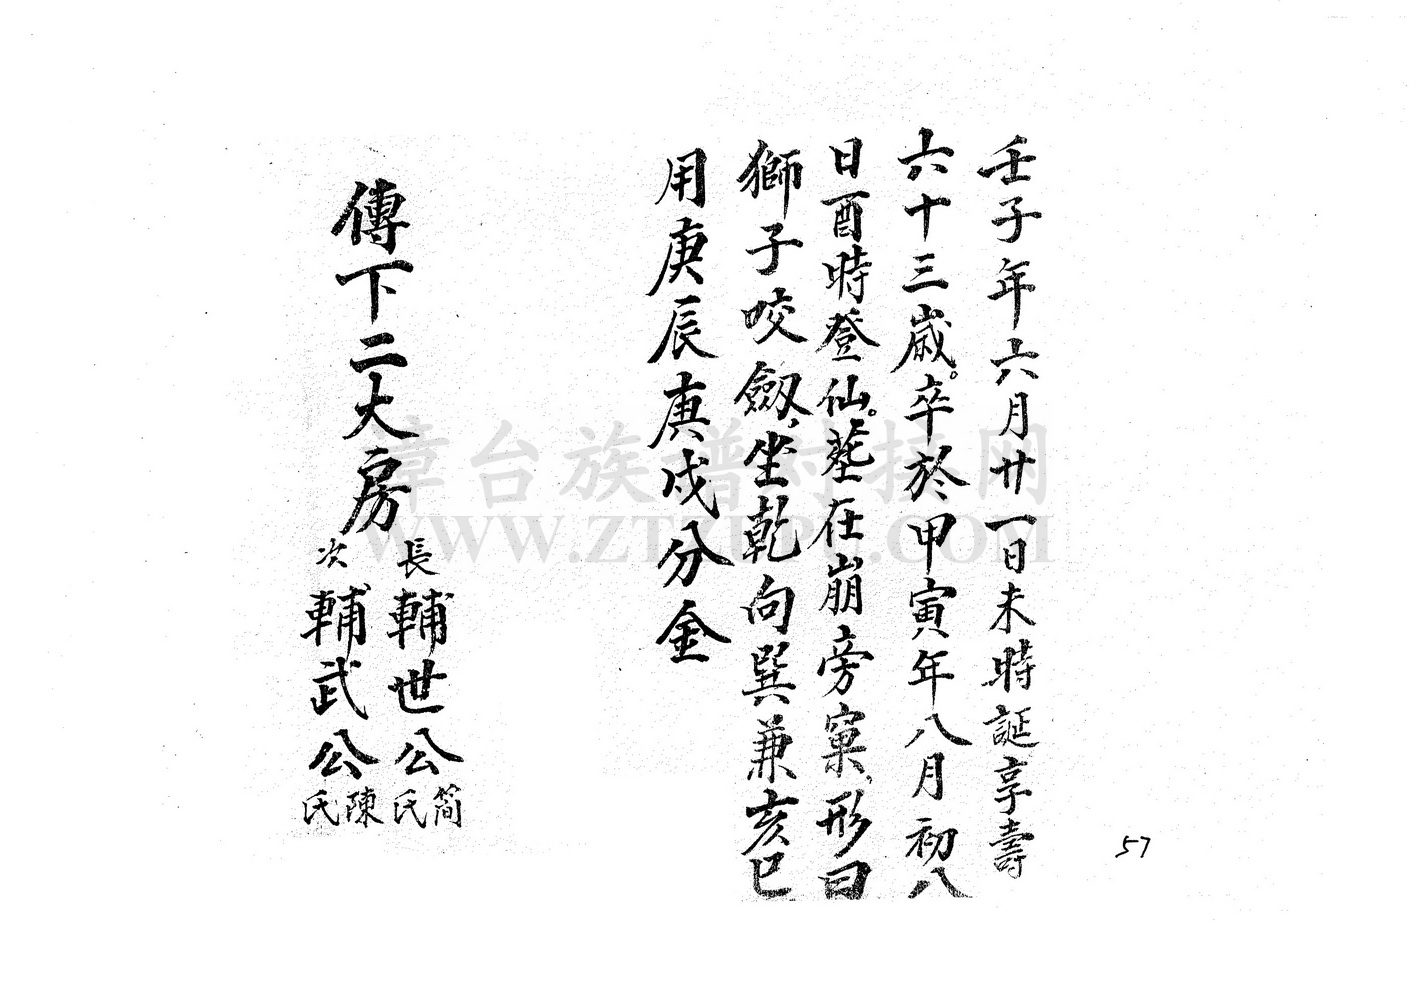 壬子年六月廿一日未時誕享壽
六十三歲。卒於甲寅年八月初八
日酉時登仙。塟在崩旁窠,形曰
獅子咬劔,坐乾向巽兼亥巳
用庚辰庚戌分金
傳下二大房
長輔世公簡氏
次輔武公陳氏
57
章台族譜对接网
WWW.ZTZUPU.COM